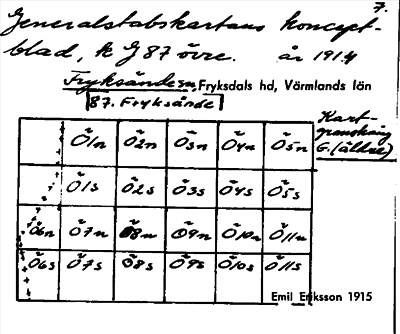 7.
Generalstabskartans koncept-
blad, k J 87 övre. år 1914
Fryksände sn, Fryksdals hd, Värmlands län
87. Fryksände
Kart-
granskning
G. (äldre)
Ö1n Ö2n Ö3n Ö4n Ö5n
Ö1s Ö2s Ö3s Ö4s Ö5s
Ö6n Ö7n Ö8n Ö9n Ö10n Ö11n
Ö6s Ö7s Ö8s Ö9s Ö10s Ö11s
Emil Eriksson 1915